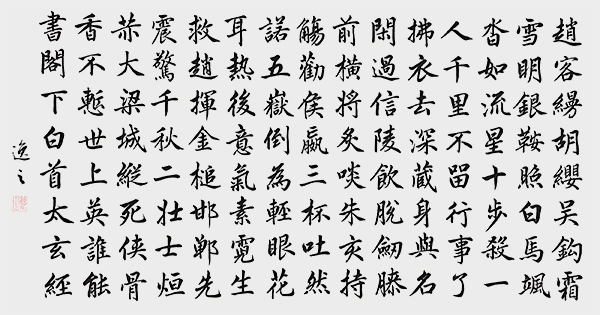 趙客縵胡纓吳鈎霜
雪明銀鞍照白馬颯
沓如流星十步殺一
人千里不留行事了
拂衣去深藏身與名
閑過信陵飲脫劒膝
前橫將炙啖朱亥持
觴勸侯嬴三杯吐然
諾五嶽倒為輕眼花
耳熱後意氣素霓生
救趙揮金槌邯鄲先
震驚千秋二壯士烜
赫大梁城縱死俠骨
香不慙世上英誰能
書閣下白首太玄經
逸之